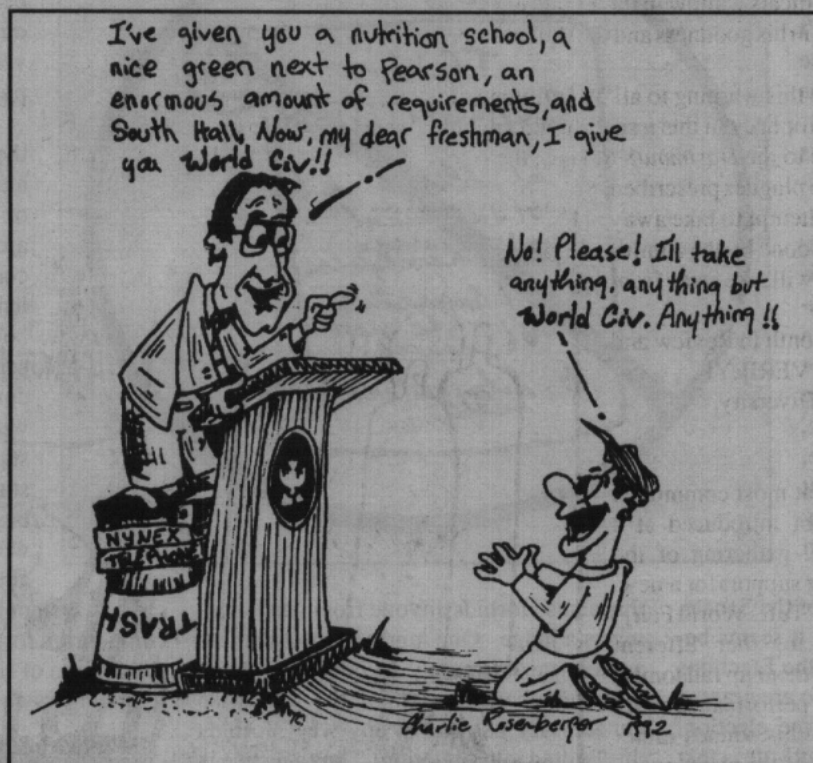 I've given you a nutrition school, a
nice green next to Pearson, an
enormous amount of requirements, and
South Hall. Now, my dear freshman, I give
you World Civ!!
No! Please! I'll take
anything, anything but
World Civ. Anything!!
NYNEX
TELEPHONE
TRASH
Charlie Rosenberger